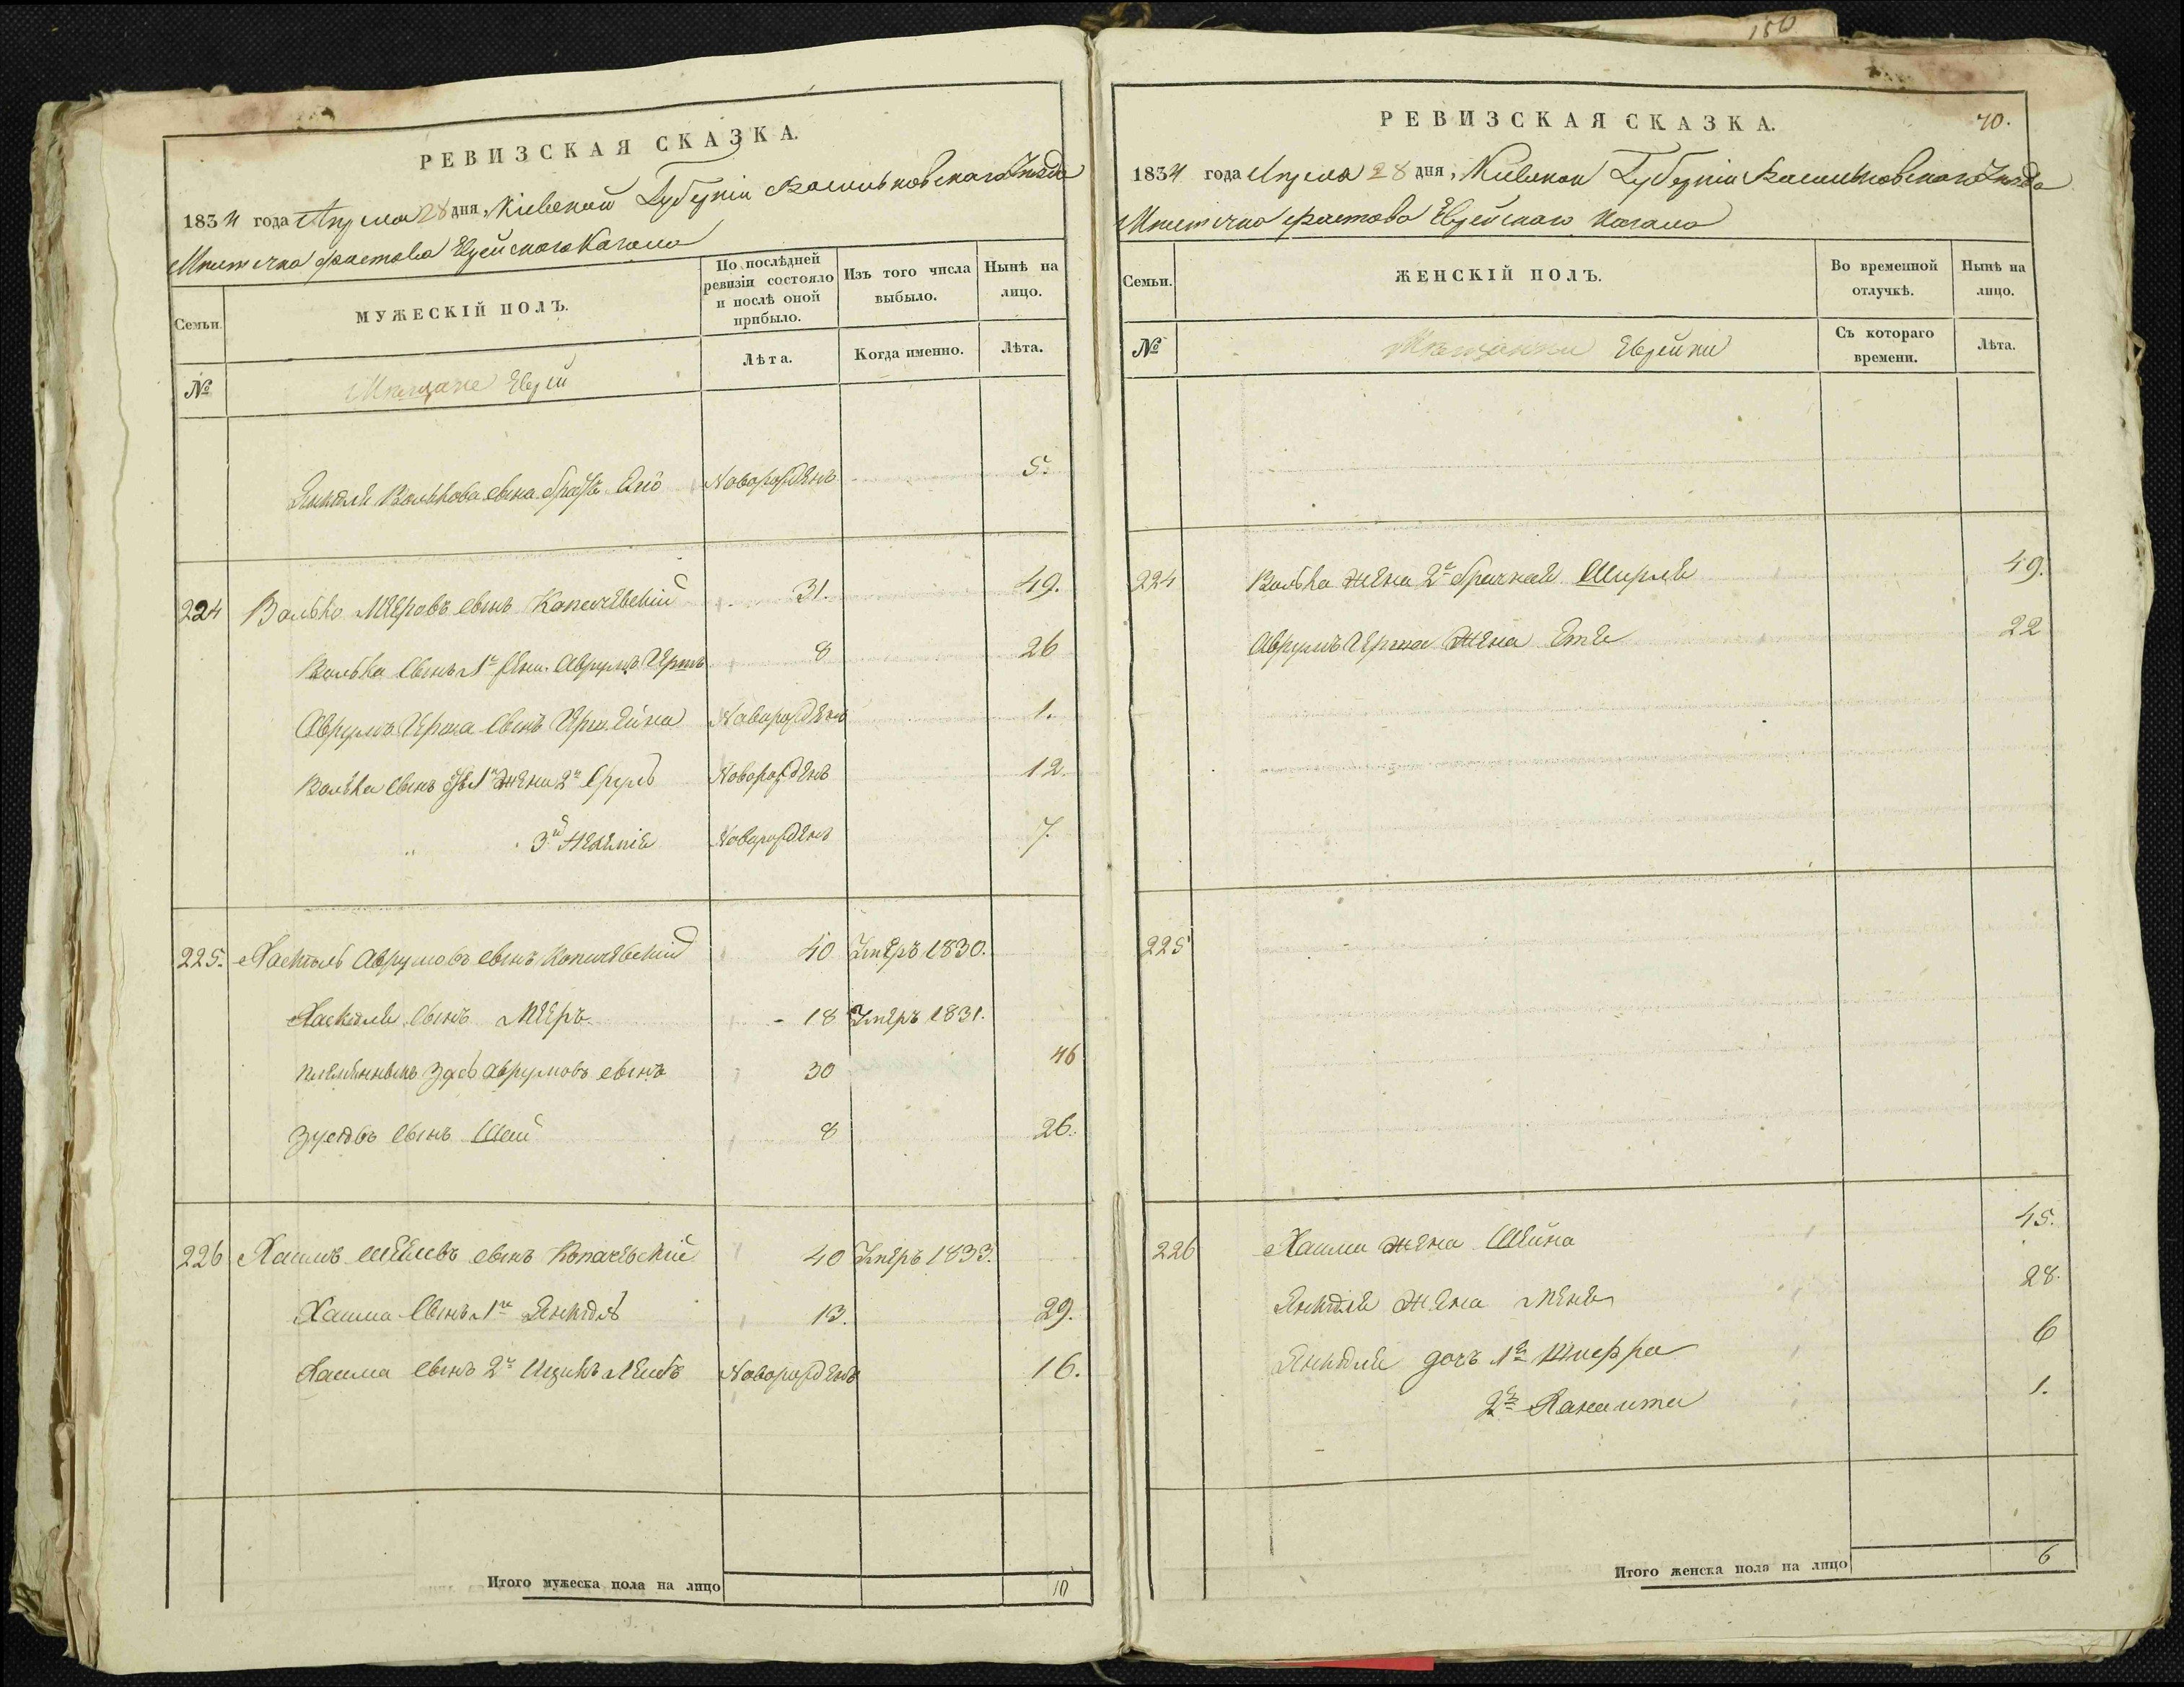 150
РЕВИЗСКАЯ СКАЗКА.
1834 года Апреля 28 дня, Кіевской Губерніи Васильковскаго Уезда
Местечка Фастова Еврейскаго Кагала
Семьи.
МУЖЕСКІЙ ПОЛЪ.
По послѣдней ревизіи состояло и послѣ оной прибыло.
Изъ того числа выбыло.
Нынѣ на лицо.
№
Мещане Евреи
Лѣта.
Когда именно.
Лѣта.
Янкеля Волькова сына Новорожденъ 5.
224 Волько Мееровъ сынъ Копачевскій 31. 49.
Волька сынъ 1й Аврумъ Герш 8 26
Аврумъ Герша сынъ Новорожденъ 1.
Волька сынъ жены 2й Сруль Новорожденъ 12.
3й Новорожденъ 7.
225. Хаскель Аврумовъ сынъ Копачевскій 40 Умеръ 1830.
Хаскеля сынъ Мееръ - 18 Умеръ 1831.
племянникъ Аврумовъ сынъ 30 46
сынъ Шай 8 26.
226 Хаимъ сынъ Копачевскій 40 Умеръ 1833.
Хаима сынъ 1й Янкель 13. 29.
Хаима сынъ 2й Ицикъ Лейбъ Новорожденъ 16.
Итого мужеска пола на лицо 10
РЕВИЗСКАЯ СКАЗКА.
70.
1834 года Апреля 28 дня, Кіевской Губерніи Васильковскаго Уезда
Местечка Фастова Еврейскаго Кагала
Семьи.
ЖЕНСКІЙ ПОЛЪ.
Во временной отлучкѣ.
Нынѣ на лицо.
№
Мещанки Еврейки
Съ котораго времени.
Лѣта.
224 Волька жена 2 брачная Ширля 49.
Аврумъ Герша жена Етя 22
225
226 Хаима жена Шейна 45.
Янкеля жена 28.
Янкеля дочь 1я Шифра 6
2я 1.
Итого женска пола на лицо 6